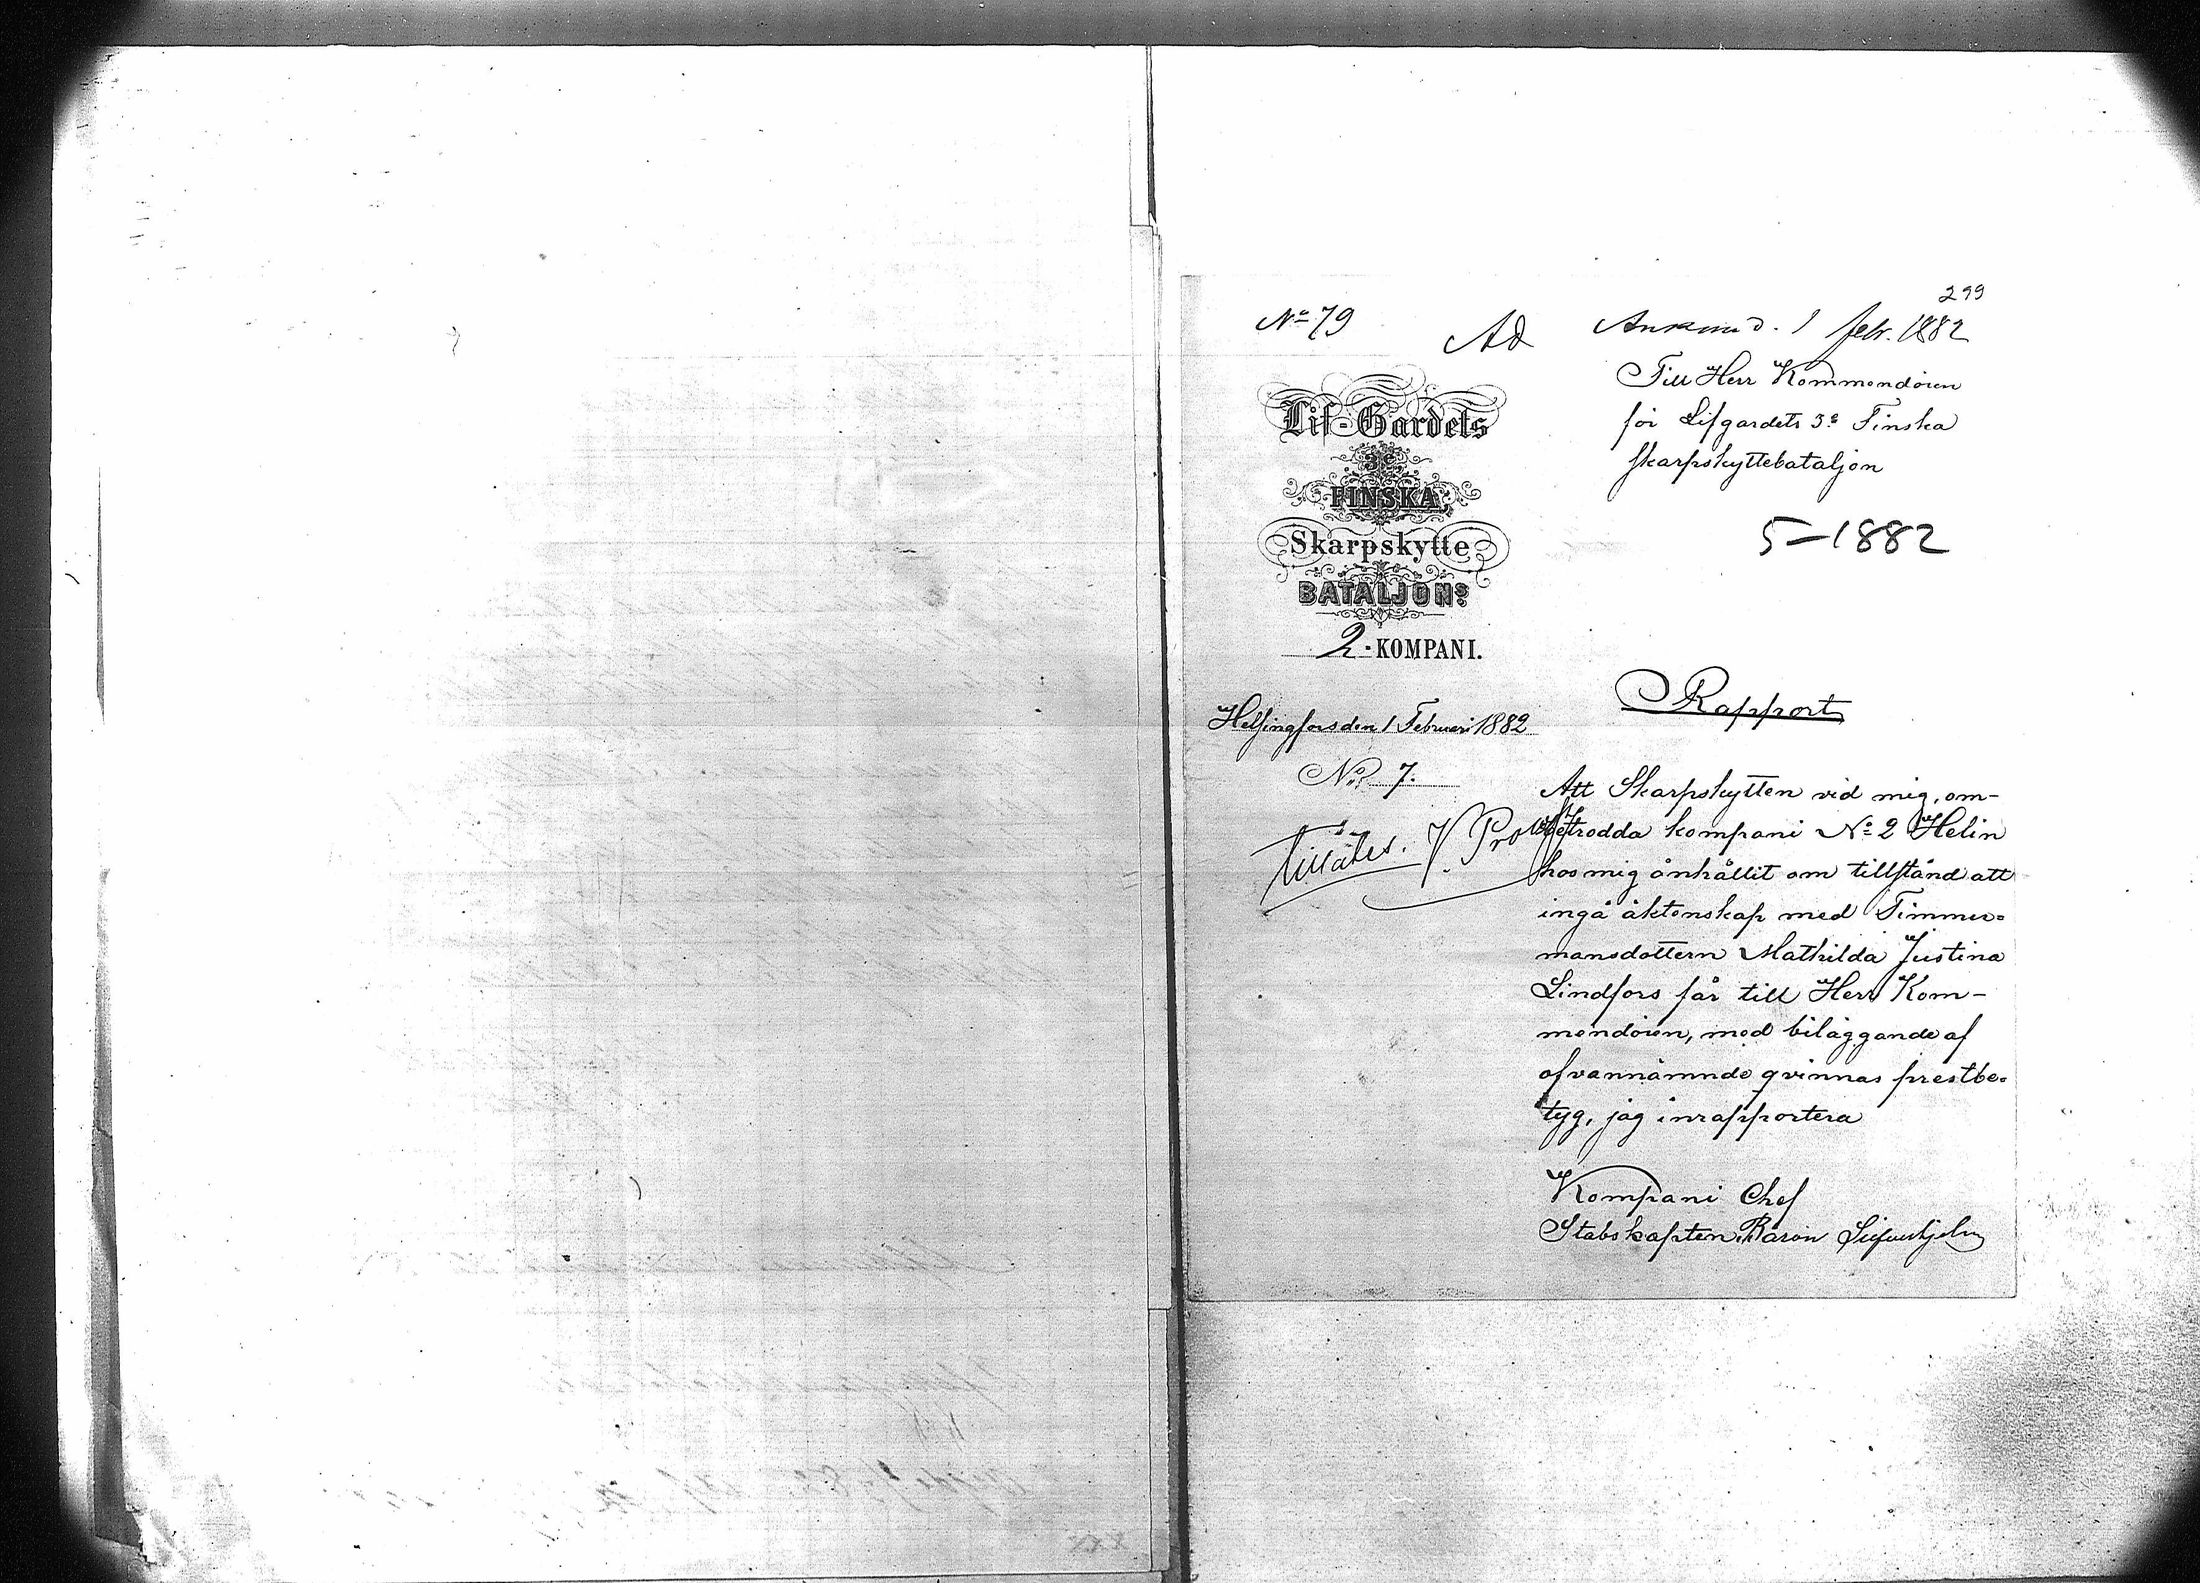 299
No 79
Ad
Ank. d. 1 febr. 1882
Till Herr Kommendören
för Lifgardets 3e Finska
Skarpskyttebataljon
5-1882
Lif-Gardets
3e
FINSKA
Skarpskytte
BATALJONS
2-KOMPANI.
Helsingfors den 1 Februari 1882
No 7.
Rapport
Att Skarpskytten vid mig, om-
betrodda kompani No 2 Helin
hos mig anhållit om tillstånd att
ingå äktenskap med Timmer-
mansdottern Mathilda Justina
Lindfors får till Herr Kom-
mendören, med biläggande af
ofvannämnde qvinnas prestbe-
tyg, jag inrapportera
Tillåtes.
Kompani Chef
Stabskapten, Baron
xxx